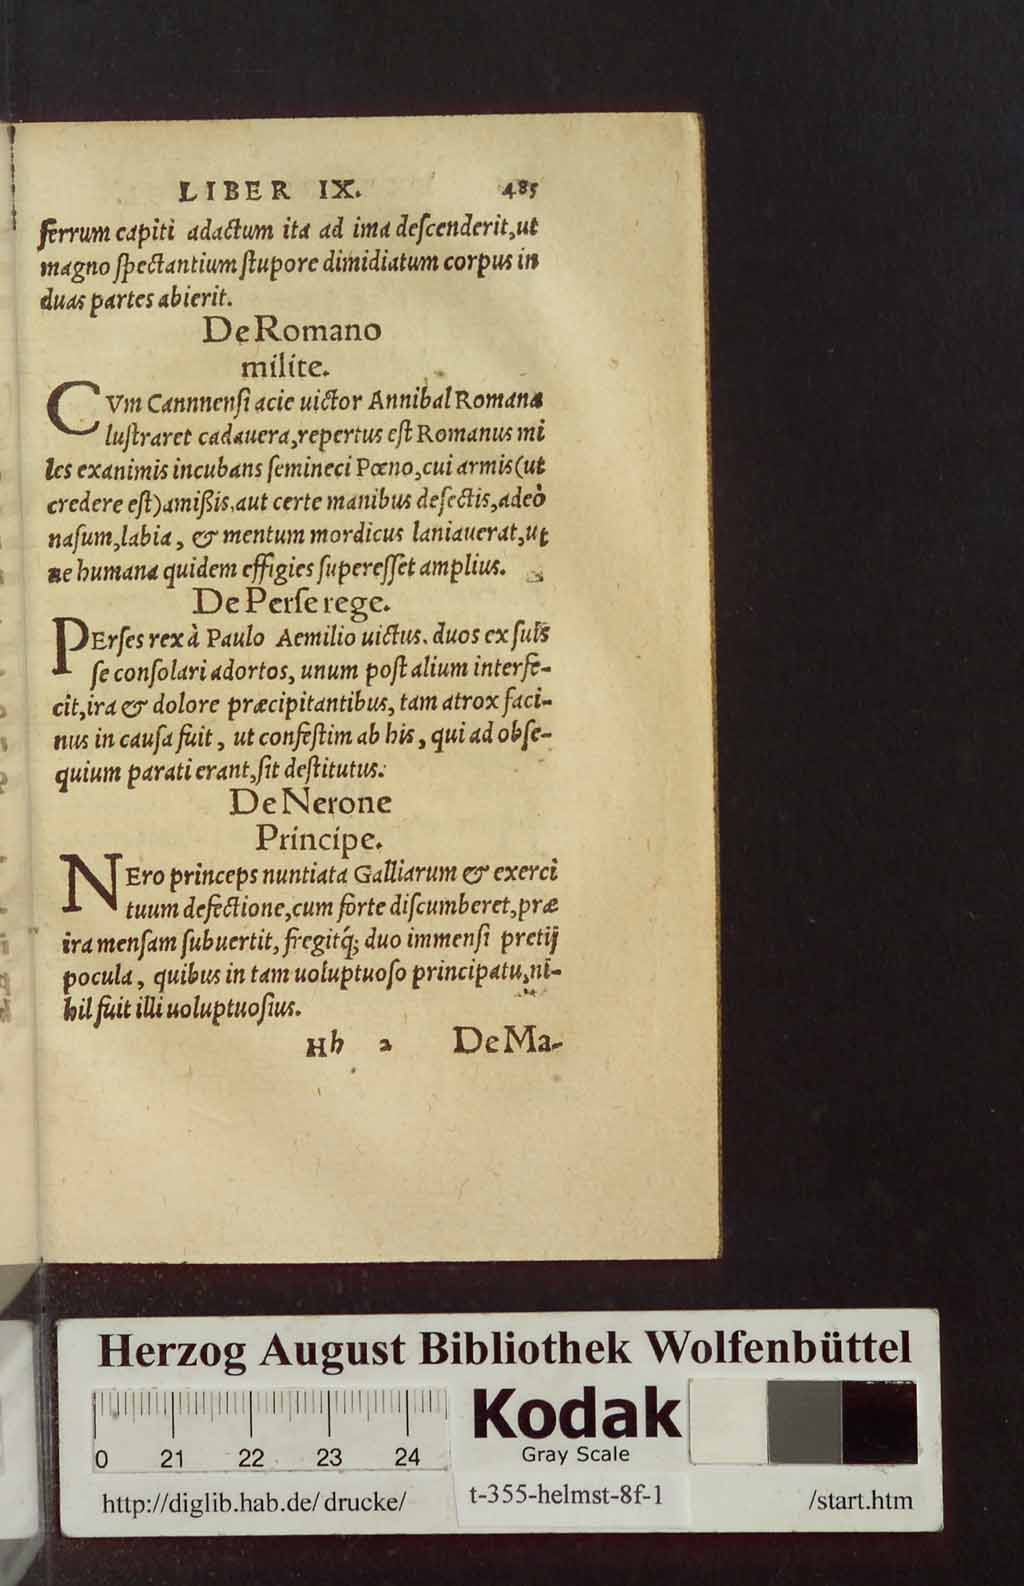 LIBER IX. 485
ferrum capiti adactum ita ad ima deſcenderit,ut
magno ſpectantium ſtupore dimidiatum corpus in
duas partes abierit.
De Romano
milite.
CVm Cannnenſi acie uictor Annibal Romana
luſtraret cadauera,repertus eſt Romanus mi
les exanimis incubans ſemineci Pœno,cui armis(ut
credere eſt)amißis,aut certe manibus deſectis,adeò
naſum,labia, & mentum mordicus laniauerat,ut
ne humana quidem effigies ſupereſſet amplius.
De Perſe rege.
PErſes rex à Paulo Aemilio uictus, duos ex ſuis
ſe conſolari adortos, unum poſt alium interfe-
cit,ira & dolore præcipitantibus, tam atrox faci-
nus in cauſa fuit, ut confeſtim ab his, qui ad obſe-
quium parati erant,ſit deſtitutus.
De Nerone
Principe.
NEro princeps nuntiata Galliarum & exerci
tuum defectione,cum forte diſcumberet,præ
ira menſam ſubuertit, fregitq́; duo immenſi pretij
pocula, quibus in tam uoluptuoſo principatu,ni-
hil fuit illi uoluptuoſius.
Hh 2 De Ma-
Herzog August Bibliothek Wolfenbüttel
Kodak
Gray Scale
0 21 22 23 24
http://diglib.hab.de/drucke/ t-355-helmst-8f-1 /start.htm